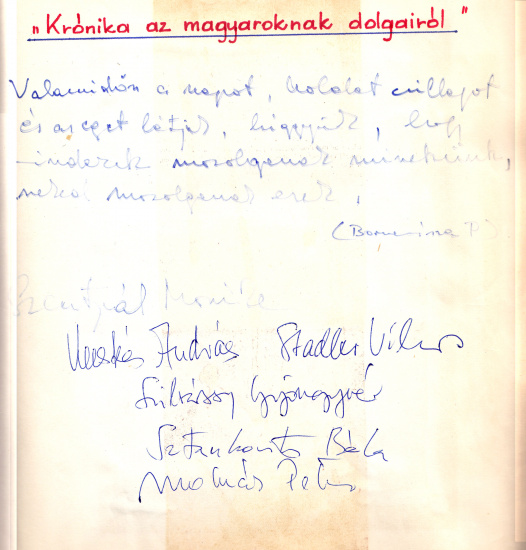 „Krónika az magyaroknak dolgairól”
Valamikőn a napot, holdat csillagot
és az eget látjuk, higgyük, hogy
mindezik mosolyganak minekünk,
nekol mosolyganak ezek.
(Bornemisza P.)
Szentpál Monica
Kecskés András Stadler Vilmos
Szilvássy Gyöngyvér
Sztankovits Béla
Molnár Péter